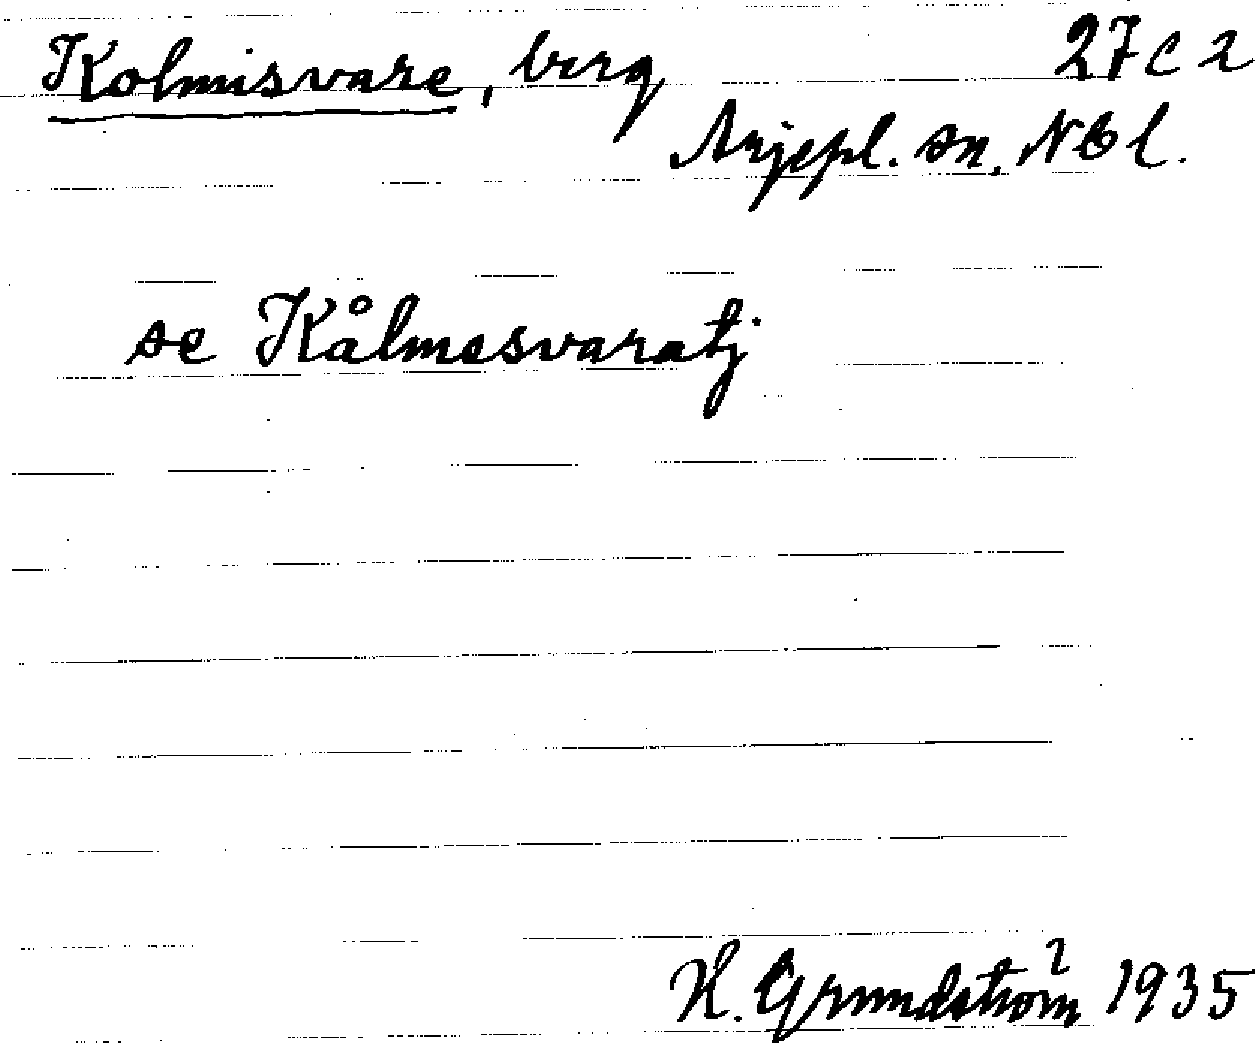 Kolmisvare, berg 27c2
Arjepl. sn, Nbl.
se Kålmesvaratj
H. Grundström 1935